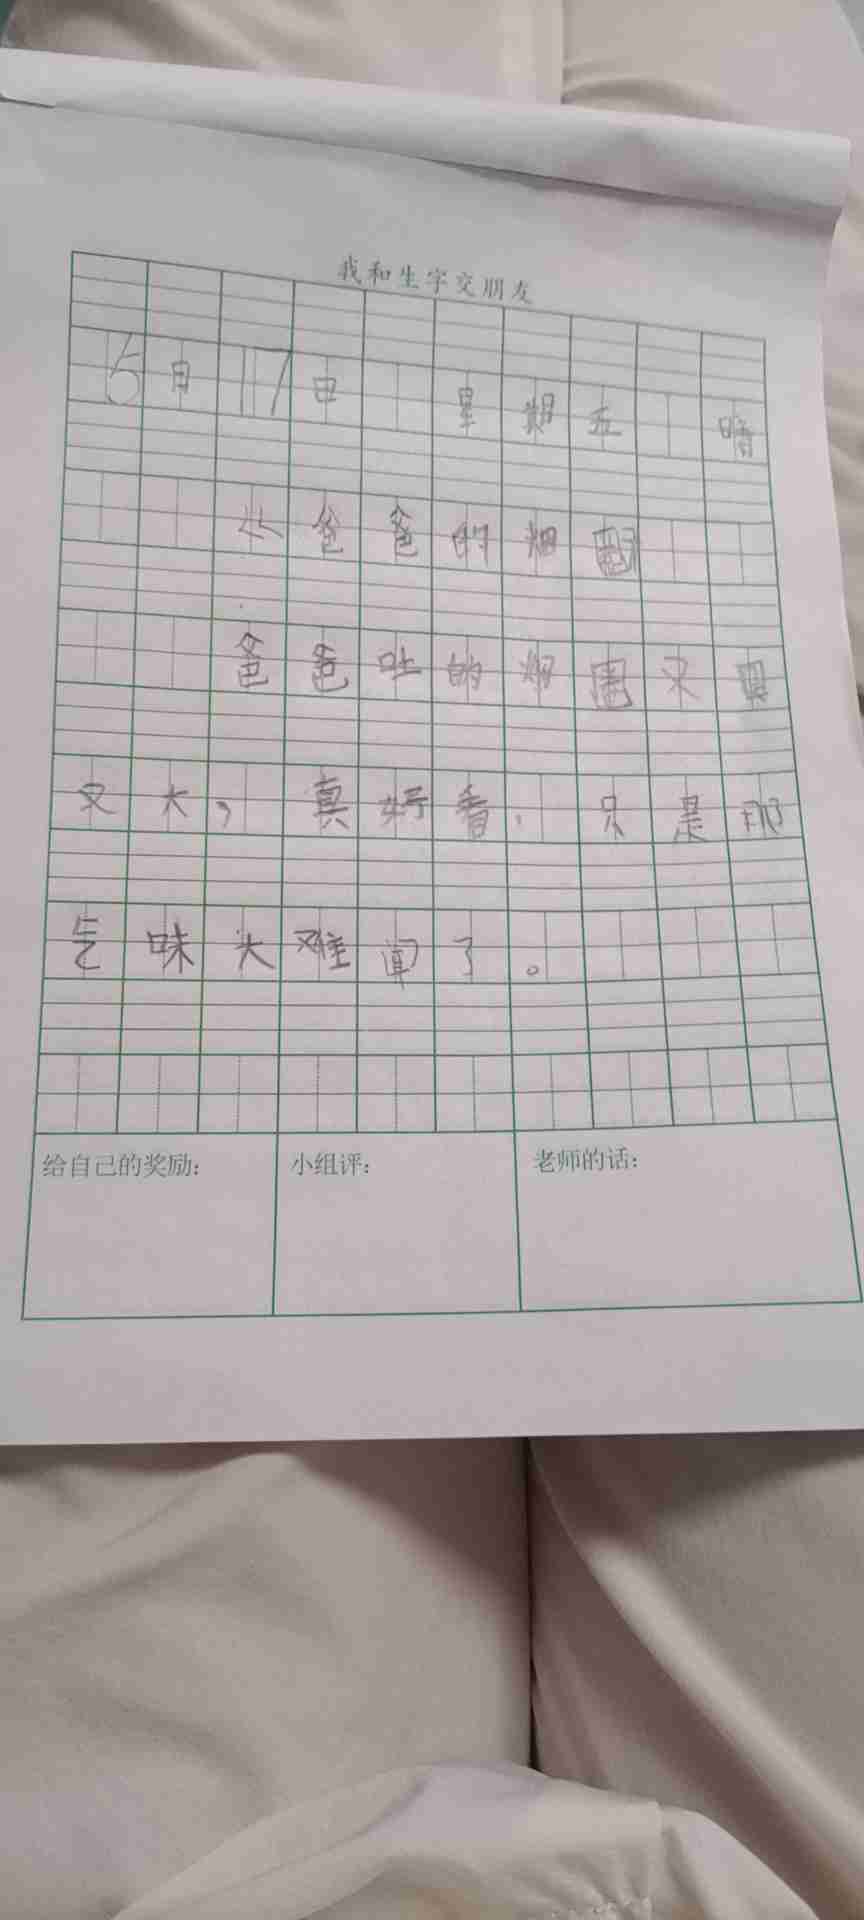 我和生字交朋友
5月17日 星期五 晴
爸爸的烟圈
爸爸吐的烟圈又圆
又大，真好看，只是那
气味太难闻了。
给自己的奖励： 小组评： 老师的话：